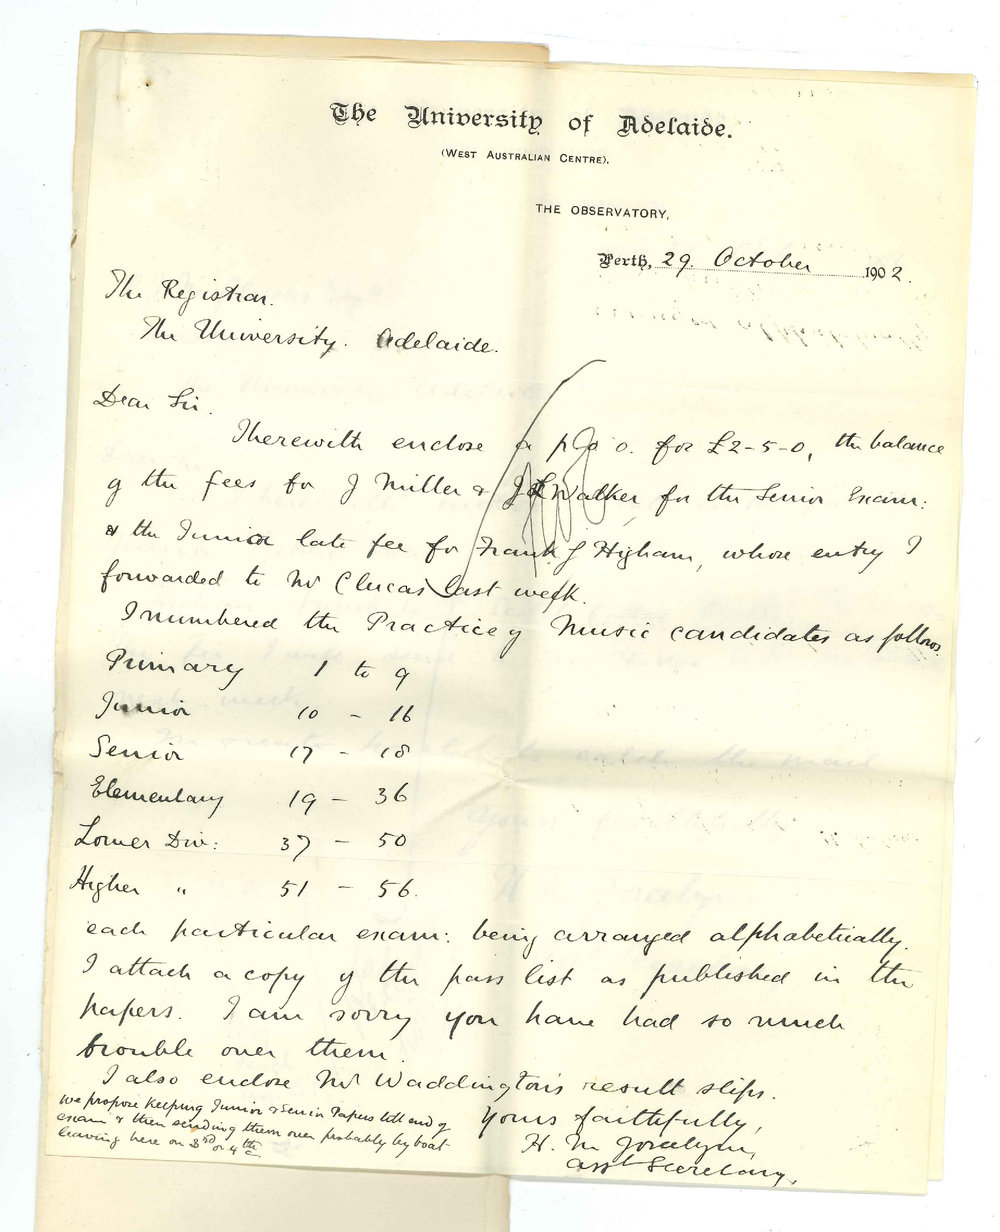 The University of Adelaide.
(WEST AUSTRALIAN CENTRE).
THE OBSERVATORY,
Perth, 29. October 1902.
The Registrar.
The University. Adelaide.
Dear Sir.
I herewith enclose a p o. for £2-5-0, the balance
of the fees for J Miller & J Walker for the Senior Exam:
& the Junior late fee for Frank J Higham, whose entry I
forwarded to Mr Clucas last week.
I numbered the Practice of Music candidates as follows
Primary 1 to 9
Junior 10 - 16
Senior 17 - 18
Elementary 19 - 36
Lower Div: 37 - 50
Higher " 51 - 56.
each particular exam: being arranged alphabetically.
I attach a copy of the pass list as published in the
papers. I am sorry you have had so much
trouble over them.
I also enclose Mr Waddington's result slips.
Yours faithfully,
H. M Jocelyn,
Asst Secretary,
We propose keeping Junior & Senior Papers till end of
exam & then sending them over probably by boat
leaving here on 3rd or 4th